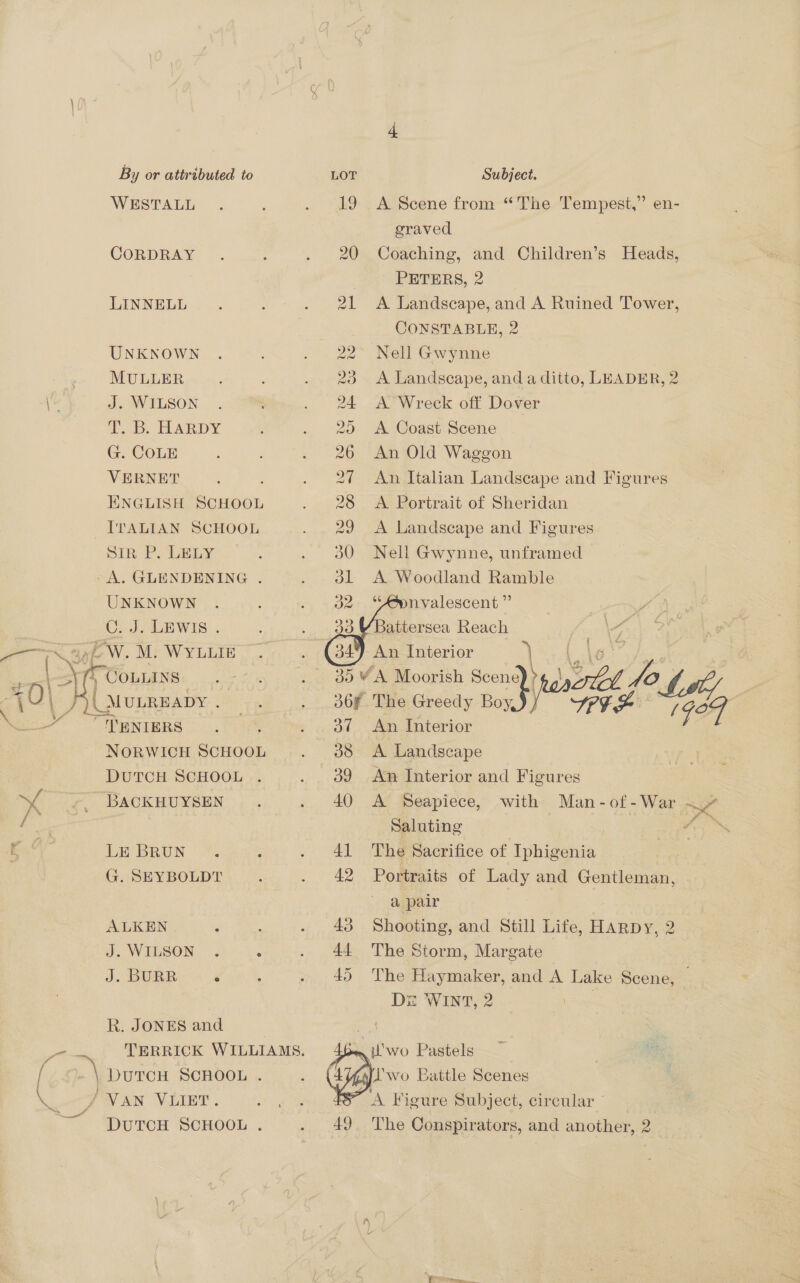 4
By or attributed to LOT Subject.
WESTALL . . . 19 A Scene from “The Tempest,” en-
graved
CORDRAY . . . 20 Coaching, and Children’s Heads,
PETERS, 2
LINNELL . . . 21 A Landscape, and A Ruined Tower,
CONSTABLE, 2
UNKNOWN . . . 22 Nell Gwynne
MULLER . . . 23 A Landscape, and a ditto, LEADER, 2
J. WILSON . . . 24 A Wreck off Dover
T. B. HARDY . . 25 A Coast Scene
G. COLE . . . 26 An Old Waggon
VERNET . . . 27 An Italian Landscape and Figures
ENGLISH SCHOOL . 28 A Portrait of Sheridan
ITALIAN SCHOOL . 29 A Landscape and Figures
SIR P. LELY . . 30 Nell Gwynne, unframed
A. GLENDENING . . 31 A Woodland Ramble
UNKNOWN . . . 32 “Convalescent”
C. J. LEWIS . . . 33 Battersea Reach
W. M. WYLLIE . . 34 An Interior
COLLINS . . . 35 A Moorish Scene
MULREADY . . . 36 The Greedy Boy
TENIERS . . . 37 An Interior
NORWICH SCHOOL . 38 A Landscape
DUTCH SCHOOL . . 39 An Interior and Figures
BACKHUYSEN . . 40 A Seapiece, with Man-of-War
Saluting
LE BRUN . . . 41 The Sacrifice of Iphigenia
G. SEYBOLDT . . 42 Portraits of Lady and Gentleman,
a pair
ALKEN . . . 43 Shooting, and Still Life, HARDY, 2
J. WILSON . . . 44 The Storm, Margate
J. BURR . . . 45 The Haymaker, and A Lake Scene,
DE WINT, 2
R. JONES and
TERRICK WILLIAMS. 46 Two Pastels
DUTCH SCHOOL . . 47 Two Battle Scenes
VAN VLIET . . . 48 A Figure Subject, circular
DUTCH SCHOOL . . 49 The Conspirators, and another, 2